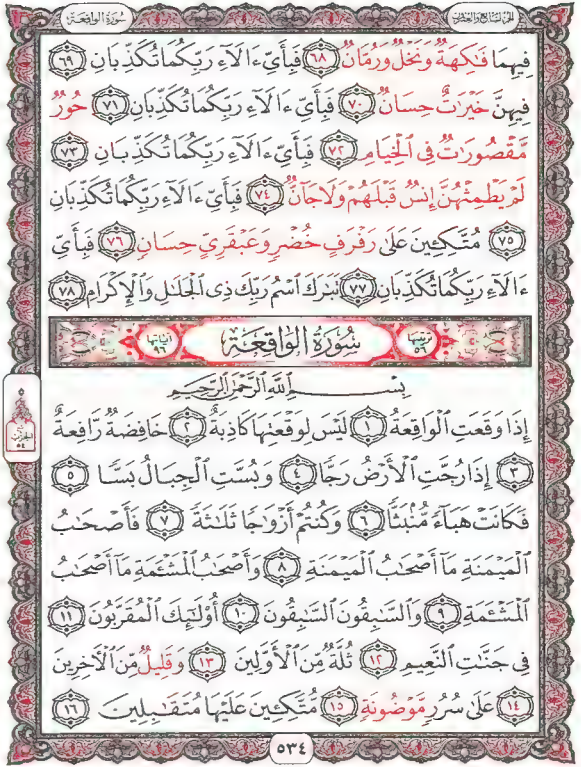 سُورَةُ الوَاقِعَةِ
الجزء السابع والعشرون
فِيهِمَا فَٰكِهَةٌ وَنَخْلٌ وَرُمَّانٌ ٦٨ فَبِأَيِّ ءَالَآءِ رَبِّكُمَا تُكَذِّبَانِ ٦٩
فِيهِنَّ خَيْرَٰتٌ حِسَانٌ ٧٠ فَبِأَيِّ ءَالَآءِ رَبِّكُمَا تُكَذِّبَانِ ٧١ حُورٌ
مَّقْصُورَٰتٌ فِى ٱلْخِيَامِ ٧٢ فَبِأَيِّ ءَالَآءِ رَبِّكُمَا تُكَذِّبَانِ ٧٣
لَمْ يَطْمِثْهُنَّ إِنسٌ قَبْلَهُمْ وَلَا جَآنٌّ ٧٤ فَبِأَيِّ ءَالَآءِ رَبِّكُمَا تُكَذِّبَانِ
٧٥ مُتَّكِـِٔينَ عَلَىٰ رَفْرَفٍ خُضْرٍ وَعَبْقَرِيٍّ حِسَانٍ ٧٦ فَبِأَيِّ
ءَالَآءِ رَبِّكُمَا تُكَذِّبَانِ ٧٧ تَبَٰرَكَ ٱسْمُ رَبِّكَ ذِى ٱلْجَلَٰلِ وَٱلْإِكْرَامِ ٧٨
ترتيبها ٥٦
سُورَةُ الوَاقِعَةِ
آياتها ٩٦
بِسْمِ ٱللَّهِ ٱلرَّحْمَٰنِ ٱلرَّحِيمِ
إِذَا وَقَعَتِ ٱلْوَاقِعَةُ ١ لَيْسَ لِوَقْعَتِهَا كَاذِبَةٌ ٢ خَافِضَةٌ رَّافِعَةٌ
٣ إِذَا رُجَّتِ ٱلْأَرْضُ رَجًّا ٤ وَبُسَّتِ ٱلْجِبَالُ بَسًّا ٥
فَكَانَتْ هَبَآءً مُّنۢبَثًّا ٦ وَكُنتُمْ أَزْوَٰجًا ثَلَٰثَةً ٧ فَأَصْحَٰبُ
ٱلْمَيْمَنَةِ مَآ أَصْحَٰبُ ٱلْمَيْمَنَةِ ٨ وَأَصْحَٰبُ ٱلْمَشْـَٔمَةِ مَآ أَصْحَٰبُ
ٱلْمَشْـَٔمَةِ ٩ وَٱلسَّٰبِقُونَ ٱلسَّٰبِقُونَ ١٠ أُو۟لَٰٓئِكَ ٱلْمُقَرَّبُونَ ١١
فِى جَنَّٰتِ ٱلنَّعِيمِ ١٢ ثُلَّةٌ مِّنَ ٱلْأَوَّلِينَ ١٣ وَقَلِيلٌ مِّنَ ٱلْءَاخِرِينَ
١٤ عَلَىٰ سُرُرٍ مَّوْضُونَةٍ ١٥ مُّتَّكِـِٔينَ عَلَيْهَا مُتَقَٰبِلِينَ ١٦
٥٣٤